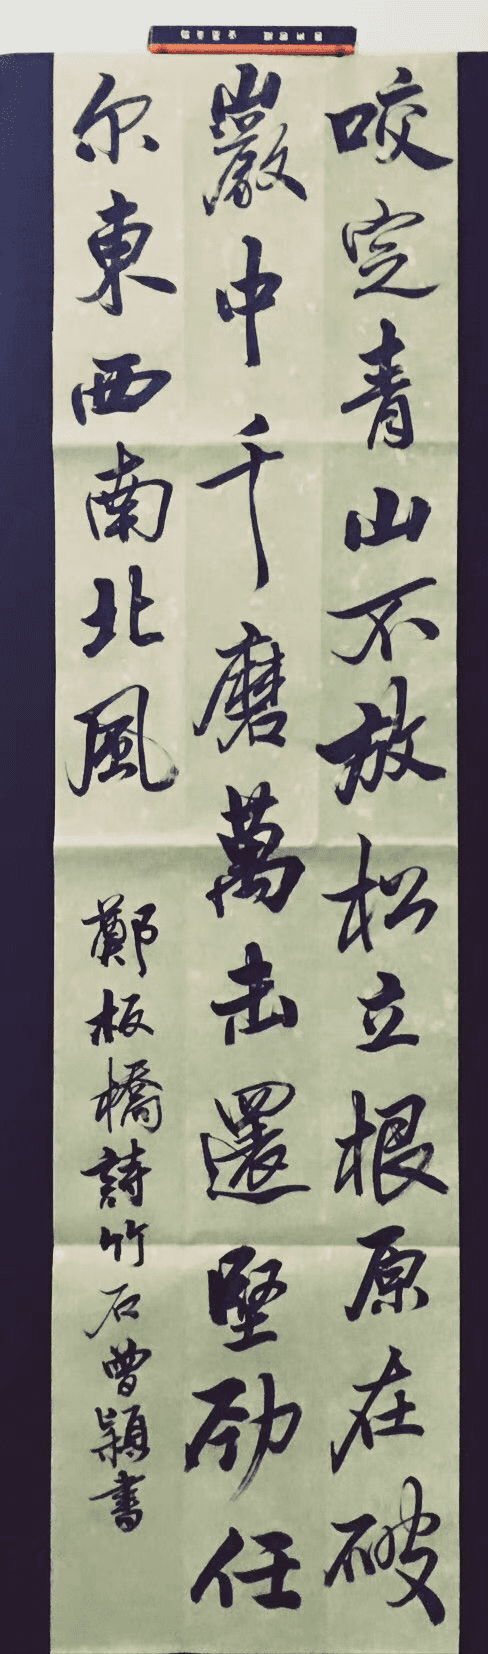 咬定青山不放松立根原在破
巖中千磨萬击還堅劲任
尔東西南北風
鄭板橋詩竹石曾穎書